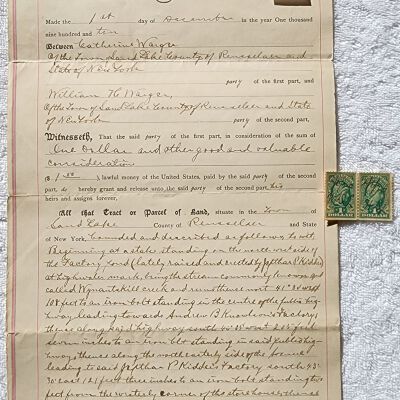 Made the 1st day of December in the year One thousand
nine hundred and ten
Between Catherine Warger
Of the Town of Sand Lake County of Rensselaer and
State of New York
party of the first part, and
William H. Warger
Of the Town of Sand Lake County of Rensselaer and State
of New York party of the second part,
Witnesseth, That the said party of the first part, in consideration of the sum of
One Dollar and other good and valuable
consideration
($ 1.00) lawful money of the United States, paid by the said party of the second
part, do hereby grant and release unto the said party of the second part, his
heirs and assigns forever,
All that Tract or Parcel of Land, situate in the Town of
Sand Lake County of Rensselaer and State
of New York, bounded and described as follows, to wit,
Beginning at a stake standing on the north west side of
the Factory Pond (lately raised and erected by Jepthar P. Kidder)
at high water mark, being the stream commonly known and
called Wynantskill creek and runs thence north 41° 45' west
108 feet to an iron bolt standing in the centre of the public high-
way leading towards Andrew B Knowlson's Factory,
thence along said highway south 40° west feet
seven inches to an iron bolt standing in said public high-
way, thence along the north easterly side of the avenue
leading to said Jepthar P. Kidder's Factory south 43°
30' east 121 feet three inches to an iron bolt standing two
feet from the westerly corner of the storehouse, thence
DOLLAR
DOLLAR